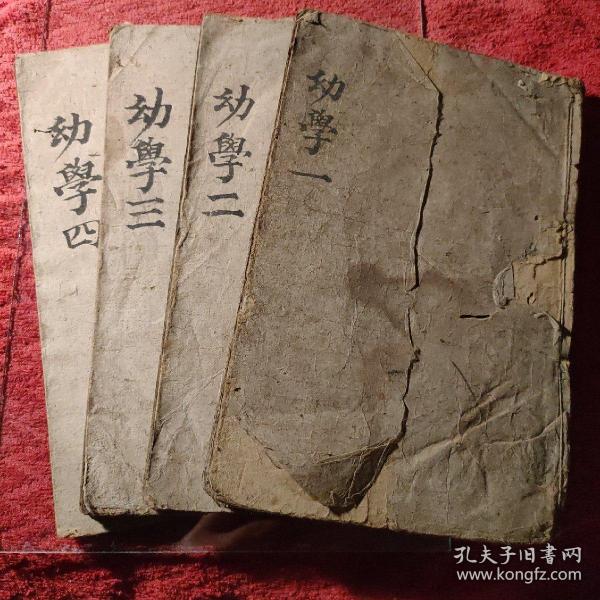 幼學一
幼學二
幼學三
幼學四
孔夫子旧書网
www.kongfz.com